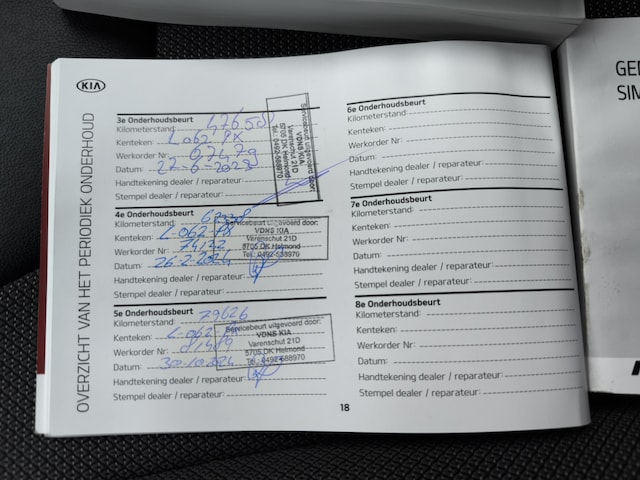 KIA
OVERZICHT VAN HET PERIODIEK ONDERHOUD
3e Onderhoudsbeurt
Kilometerstand:
Kenteken: L062PX
Werkorder Nr:
Datum: 22-6-2023
Handtekening dealer / reparateur:
Stempel dealer / reparateur:
Servicebeurt uitgevoerd door:
VDNS KIA
Varenschut 21D
5705 DK Helmond
Tel.: 0492-588970
4e Onderhoudsbeurt
Kilometerstand:
Kenteken:
Werkorder Nr: 74122
Datum: 26-2-2024
Handtekening dealer / reparateur:
Stempel dealer / reparateur:
Servicebeurt uitgevoerd door:
VDNS KIA
Varenschut 21D
5705 DK Helmond
Tel.: 0492-588970
5e Onderhoudsbeurt
Kilometerstand: 79626
Kenteken:
Werkorder Nr: 81419
Datum: 30-10-2024
Handtekening dealer / reparateur:
Stempel dealer / reparateur:
Servicebeurt uitgevoerd door:
VDNS KIA
Varenschut 21D
5705 DK Helmond
Tel.: 0492-588970
6e Onderhoudsbeurt
Kilometerstand:
Kenteken:
Werkorder Nr:
Datum:
Handtekening dealer / reparateur:
Stempel dealer / reparateur:
7e Onderhoudsbeurt
Kilometerstand:
Kenteken:
Werkorder Nr:
Datum:
Handtekening dealer / reparateur:
Stempel dealer / reparateur:
8e Onderhoudsbeurt
Kilometerstand:
Kenteken:
Werkorder Nr:
Datum:
Handtekening dealer / reparateur:
Stempel dealer / reparateur:
18